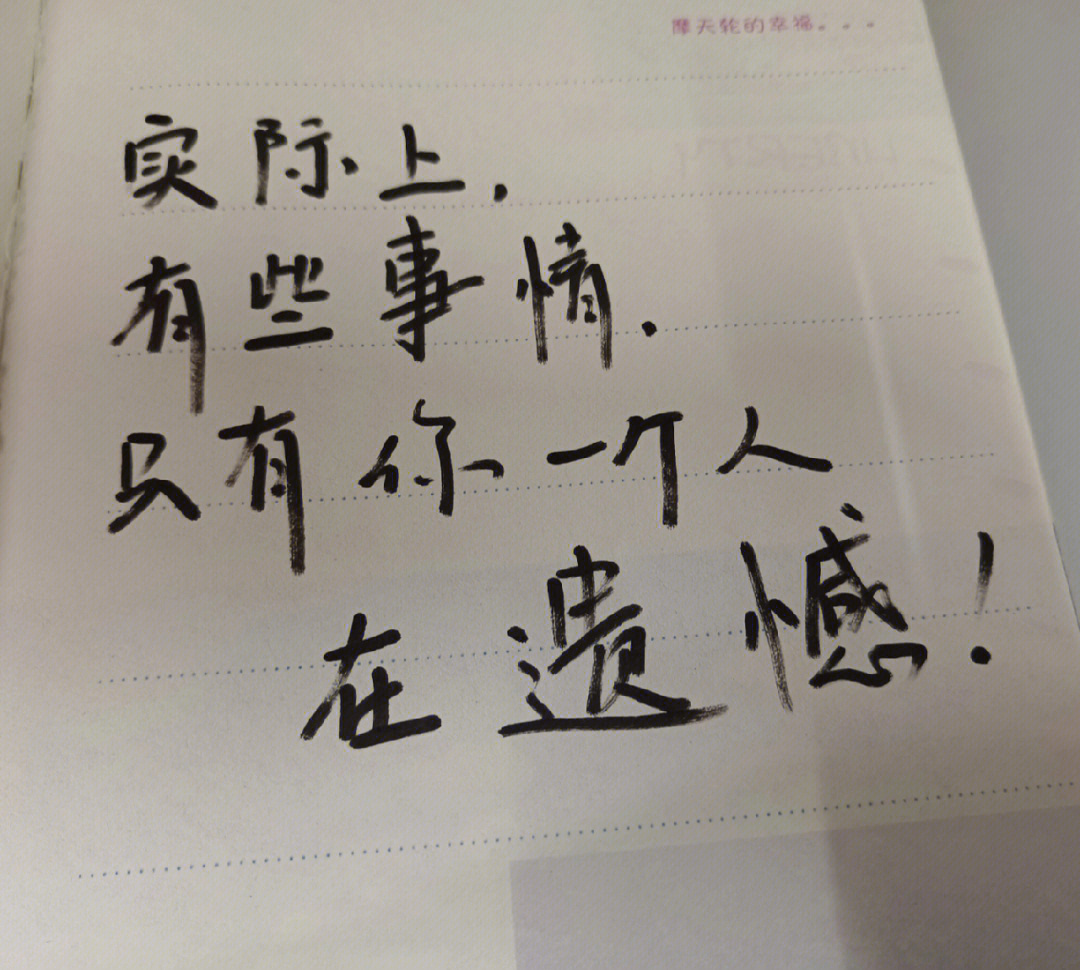 摩天轮的幸福。。。
实际上，
有些事情.
只有你一个人
在遗憾！